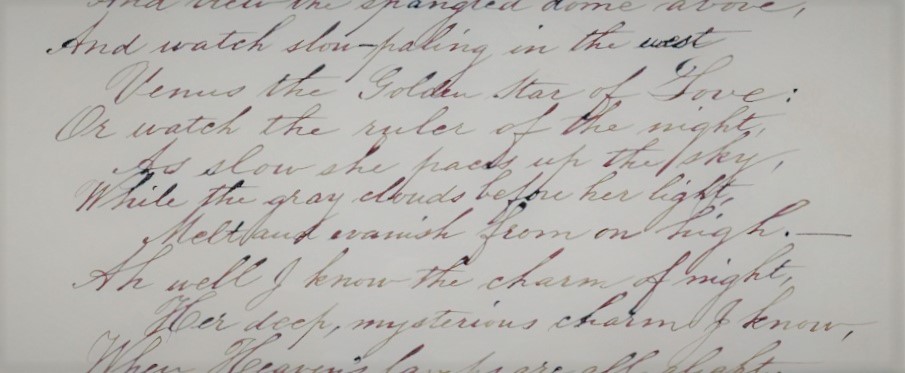 And view the spangled dome above,
And watch slow-paling in the west
Venus the Golden Star of Love:
Or watch the ruler of the night,
As slow she paces up the sky,
While the gray clouds before her light,
Melt and vanish from on high.—
Ah well I know the charm of night,
Her deep, mysterious charm I know,
When Heaven's lamps are all alight